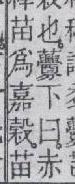 也虋下曰赤
苗爲嘉穀苗